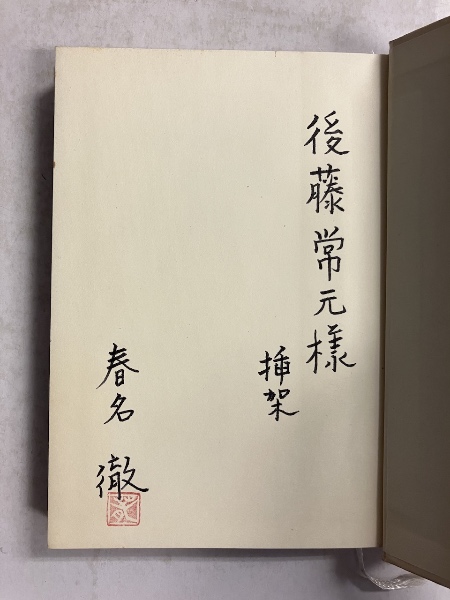 後藤常元様
挿架
春名徹